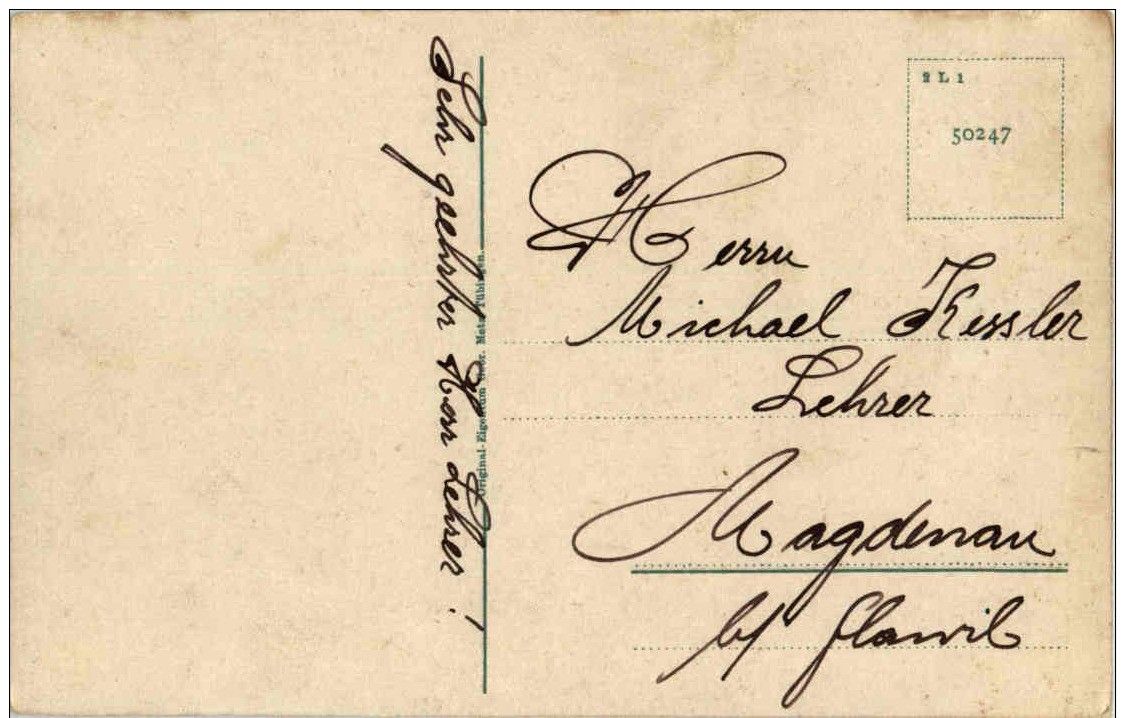 Sehr geehrter Herr Lehrer!
Original-Eigentum Gebr. Metz, Tübingen.
2 L 1
50247
Herrn
Michael Kessler
Lehrer
Magdenau
b/ Flawil